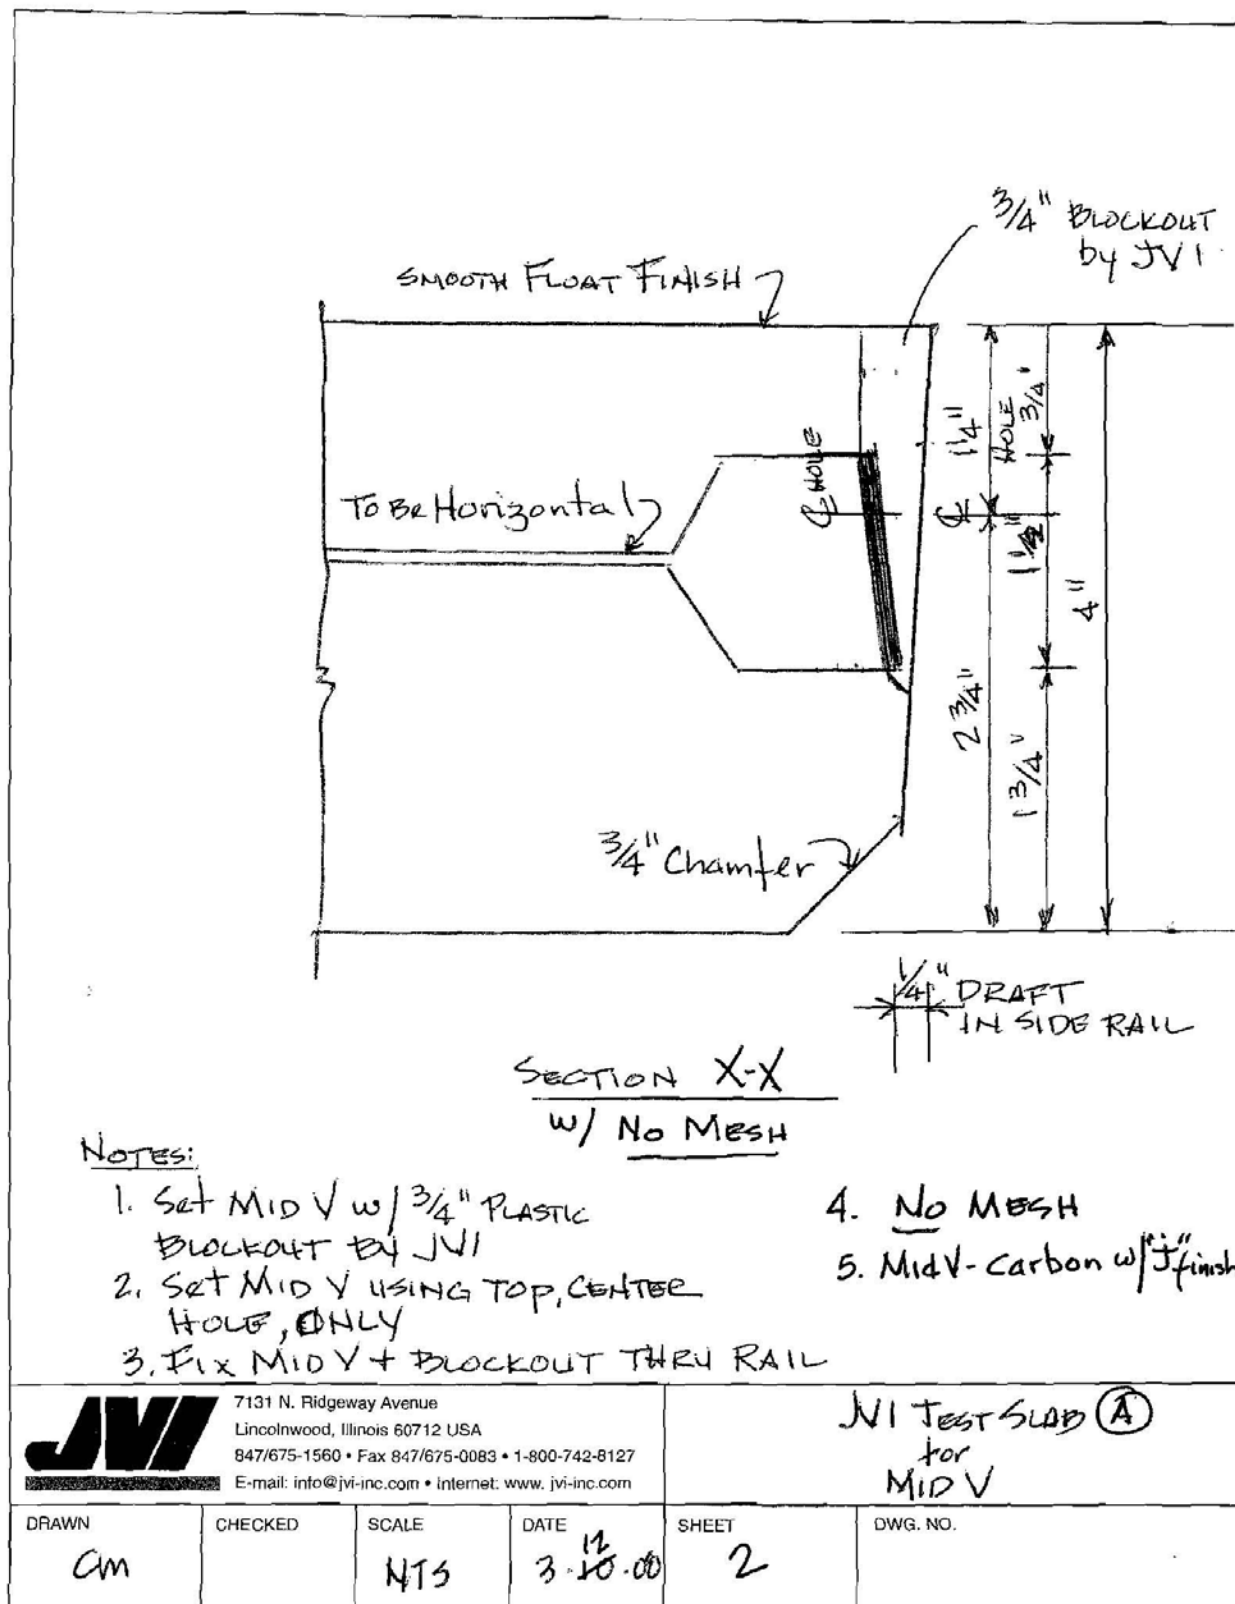 3/4" BLOCKOUT
by JVI
SMOOTH FLOAT FINISH
1 1/4"
HOLE
3/4"
℄ HOLE
℄
To Be Horizontal
1 1/2"
4"
2 3/4"
1 3/4"
3/4" Chamfer
1/4" DRAFT
IN SIDE RAIL
SECTION X-X
w/ No MESH
NOTES:
1. Set MID V w/ 3/4" PLASTIC
BLOCKOUT By JVI
2. Set MID V USING TOP, CENTER
HOLE, ONLY
3. FIX MID V + BLOCKOUT THRU RAIL
4. No MESH
5. MidV-Carbon w/"J" finish
JVI
7131 N. Ridgeway Avenue
Lincolnwood, Illinois 60712 USA
847/675-1560 • Fax 847/675-0083 • 1-800-742-8127
E-mail: info@jvi-inc.com • Internet: www. jvi-inc.com
JVI TEST SLAB (A)
for
MID V
DRAWN
CM
CHECKED
SCALE
NTS
DATE
3.12.00
SHEET
2
DWG. NO.